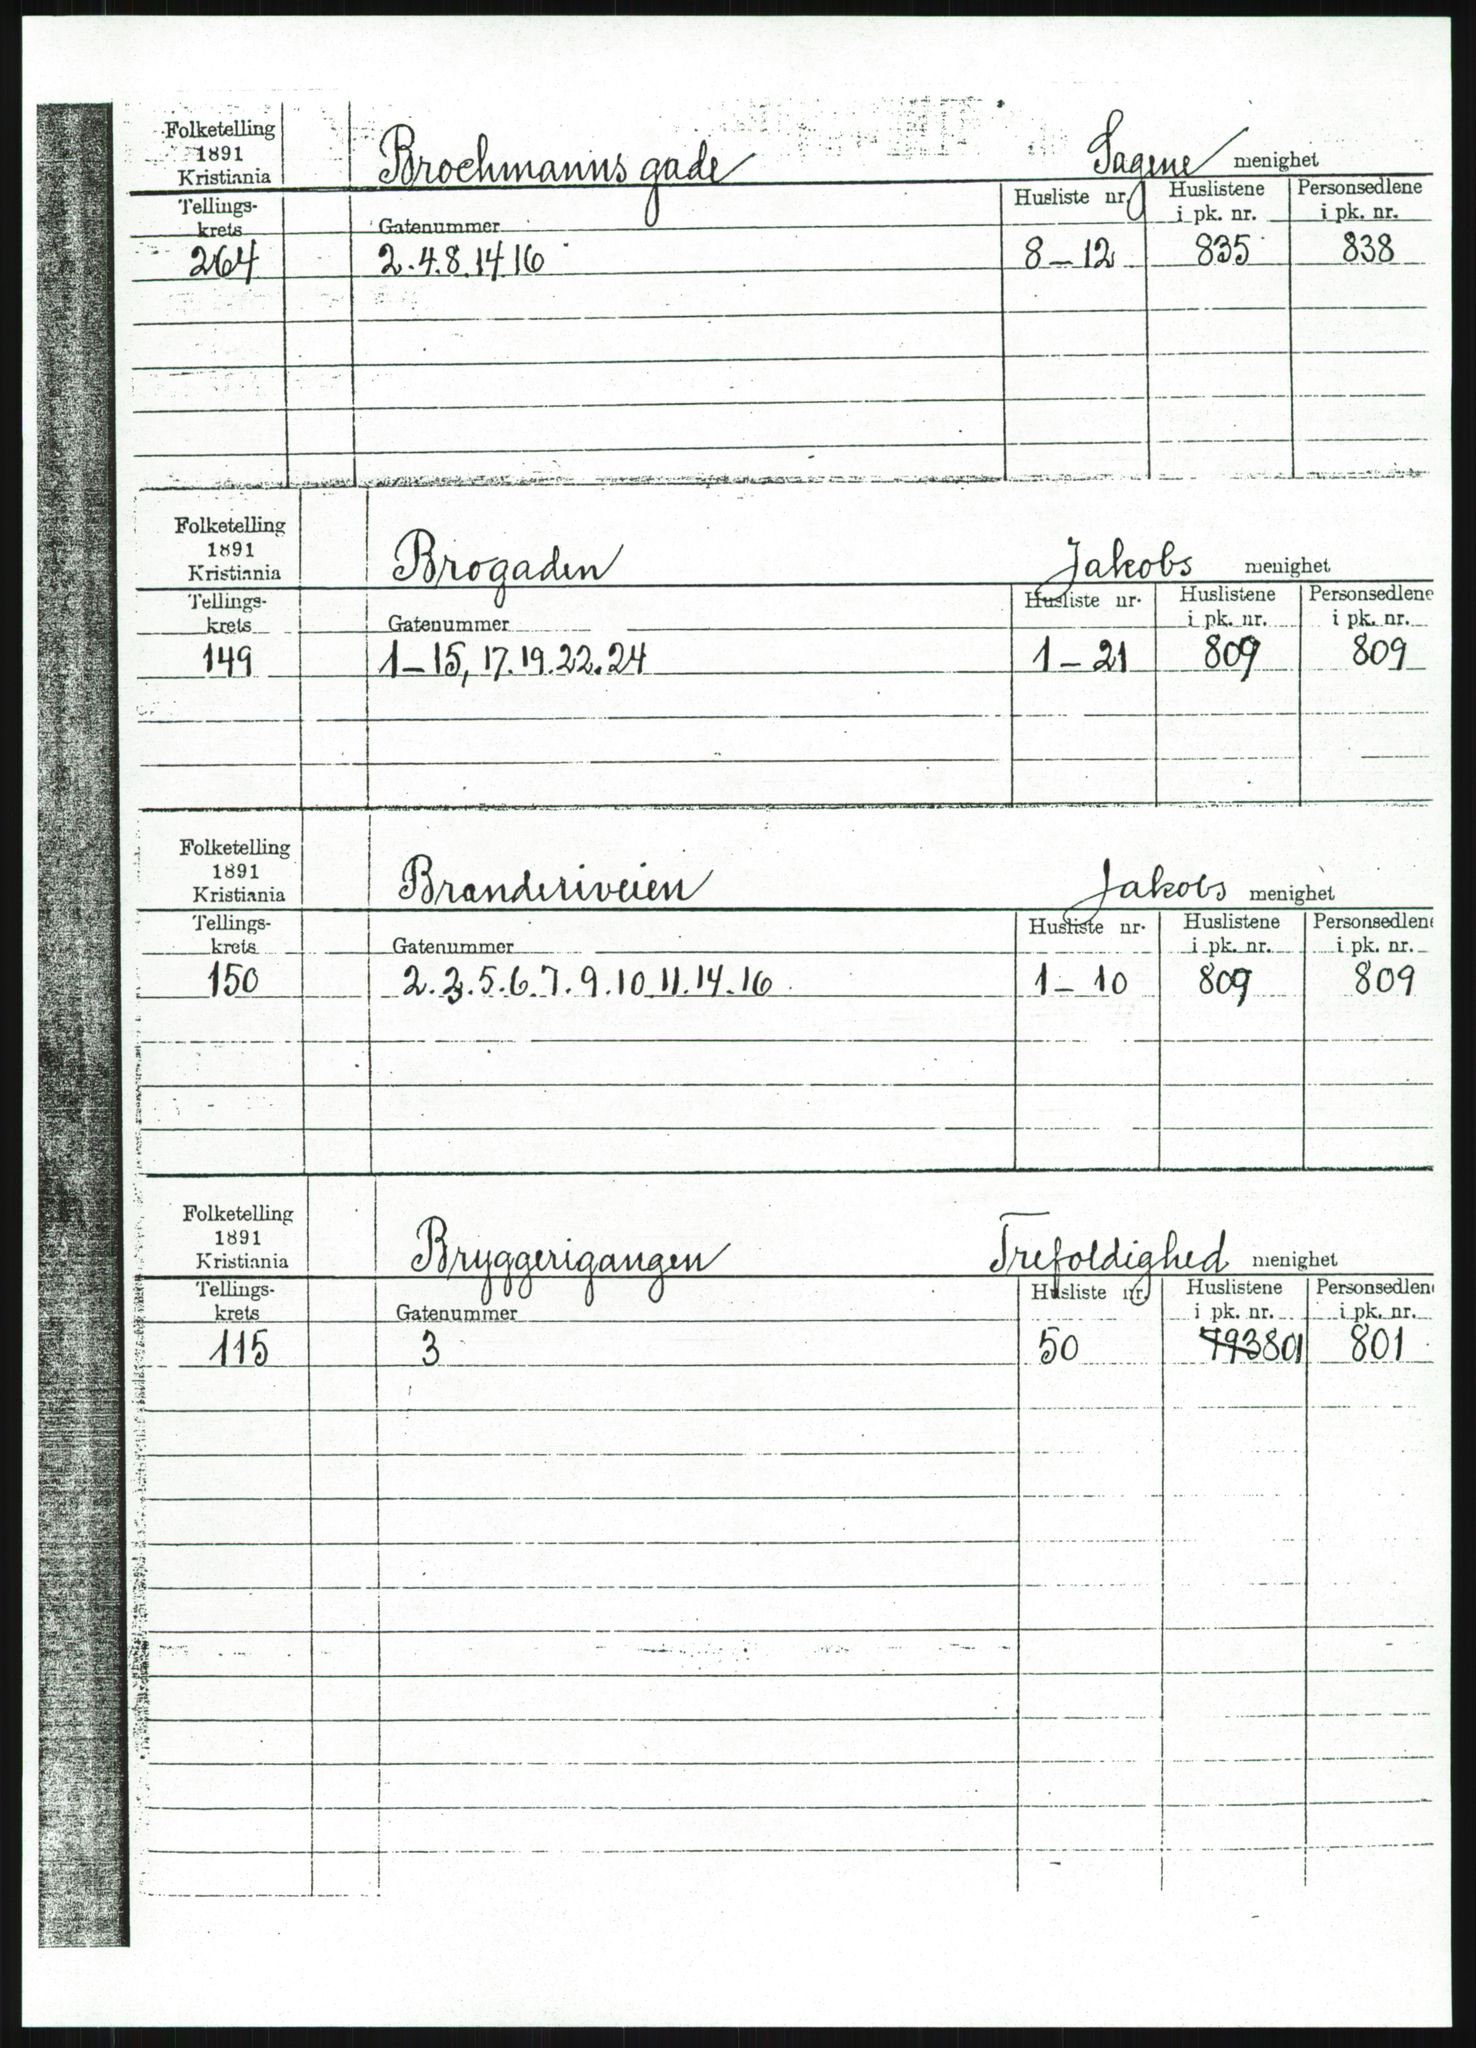 Folketelling
1891
Kristiania
Brochmanns gade Sagene menighet
Tellings-
krets Gatenummer Husliste nr. Huslistene
i pk. nr. Personsedlene
i pk. nr.
264 2.4.8.14.16 8-12 835 838
Folketelling
1891
Kristiania
Brogaden Jakobs menighet
Tellings-
krets Gatenummer Husliste nr. Huslistene
i pk. nr. Personsedlene
i pk. nr.
149 1-15, 17.19.22.24 1-21 809 809
Folketelling
1891
Kristiania
Branderiveien Jakobs menighet
Tellings-
krets Gatenummer Husliste nr. Huslistene
i pk. nr. Personsedlene
i pk. nr.
150 2.3.5.6.7.9.10.11.14.16 1-10 809 809
Folketelling
1891
Kristiania
Bryggerigangen Trefoldighed menighet
Tellings-
krets Gatenummer Husliste nr. Huslistene
i pk. nr. Personsedlene
i pk. nr.
115 3 50 793 801 801